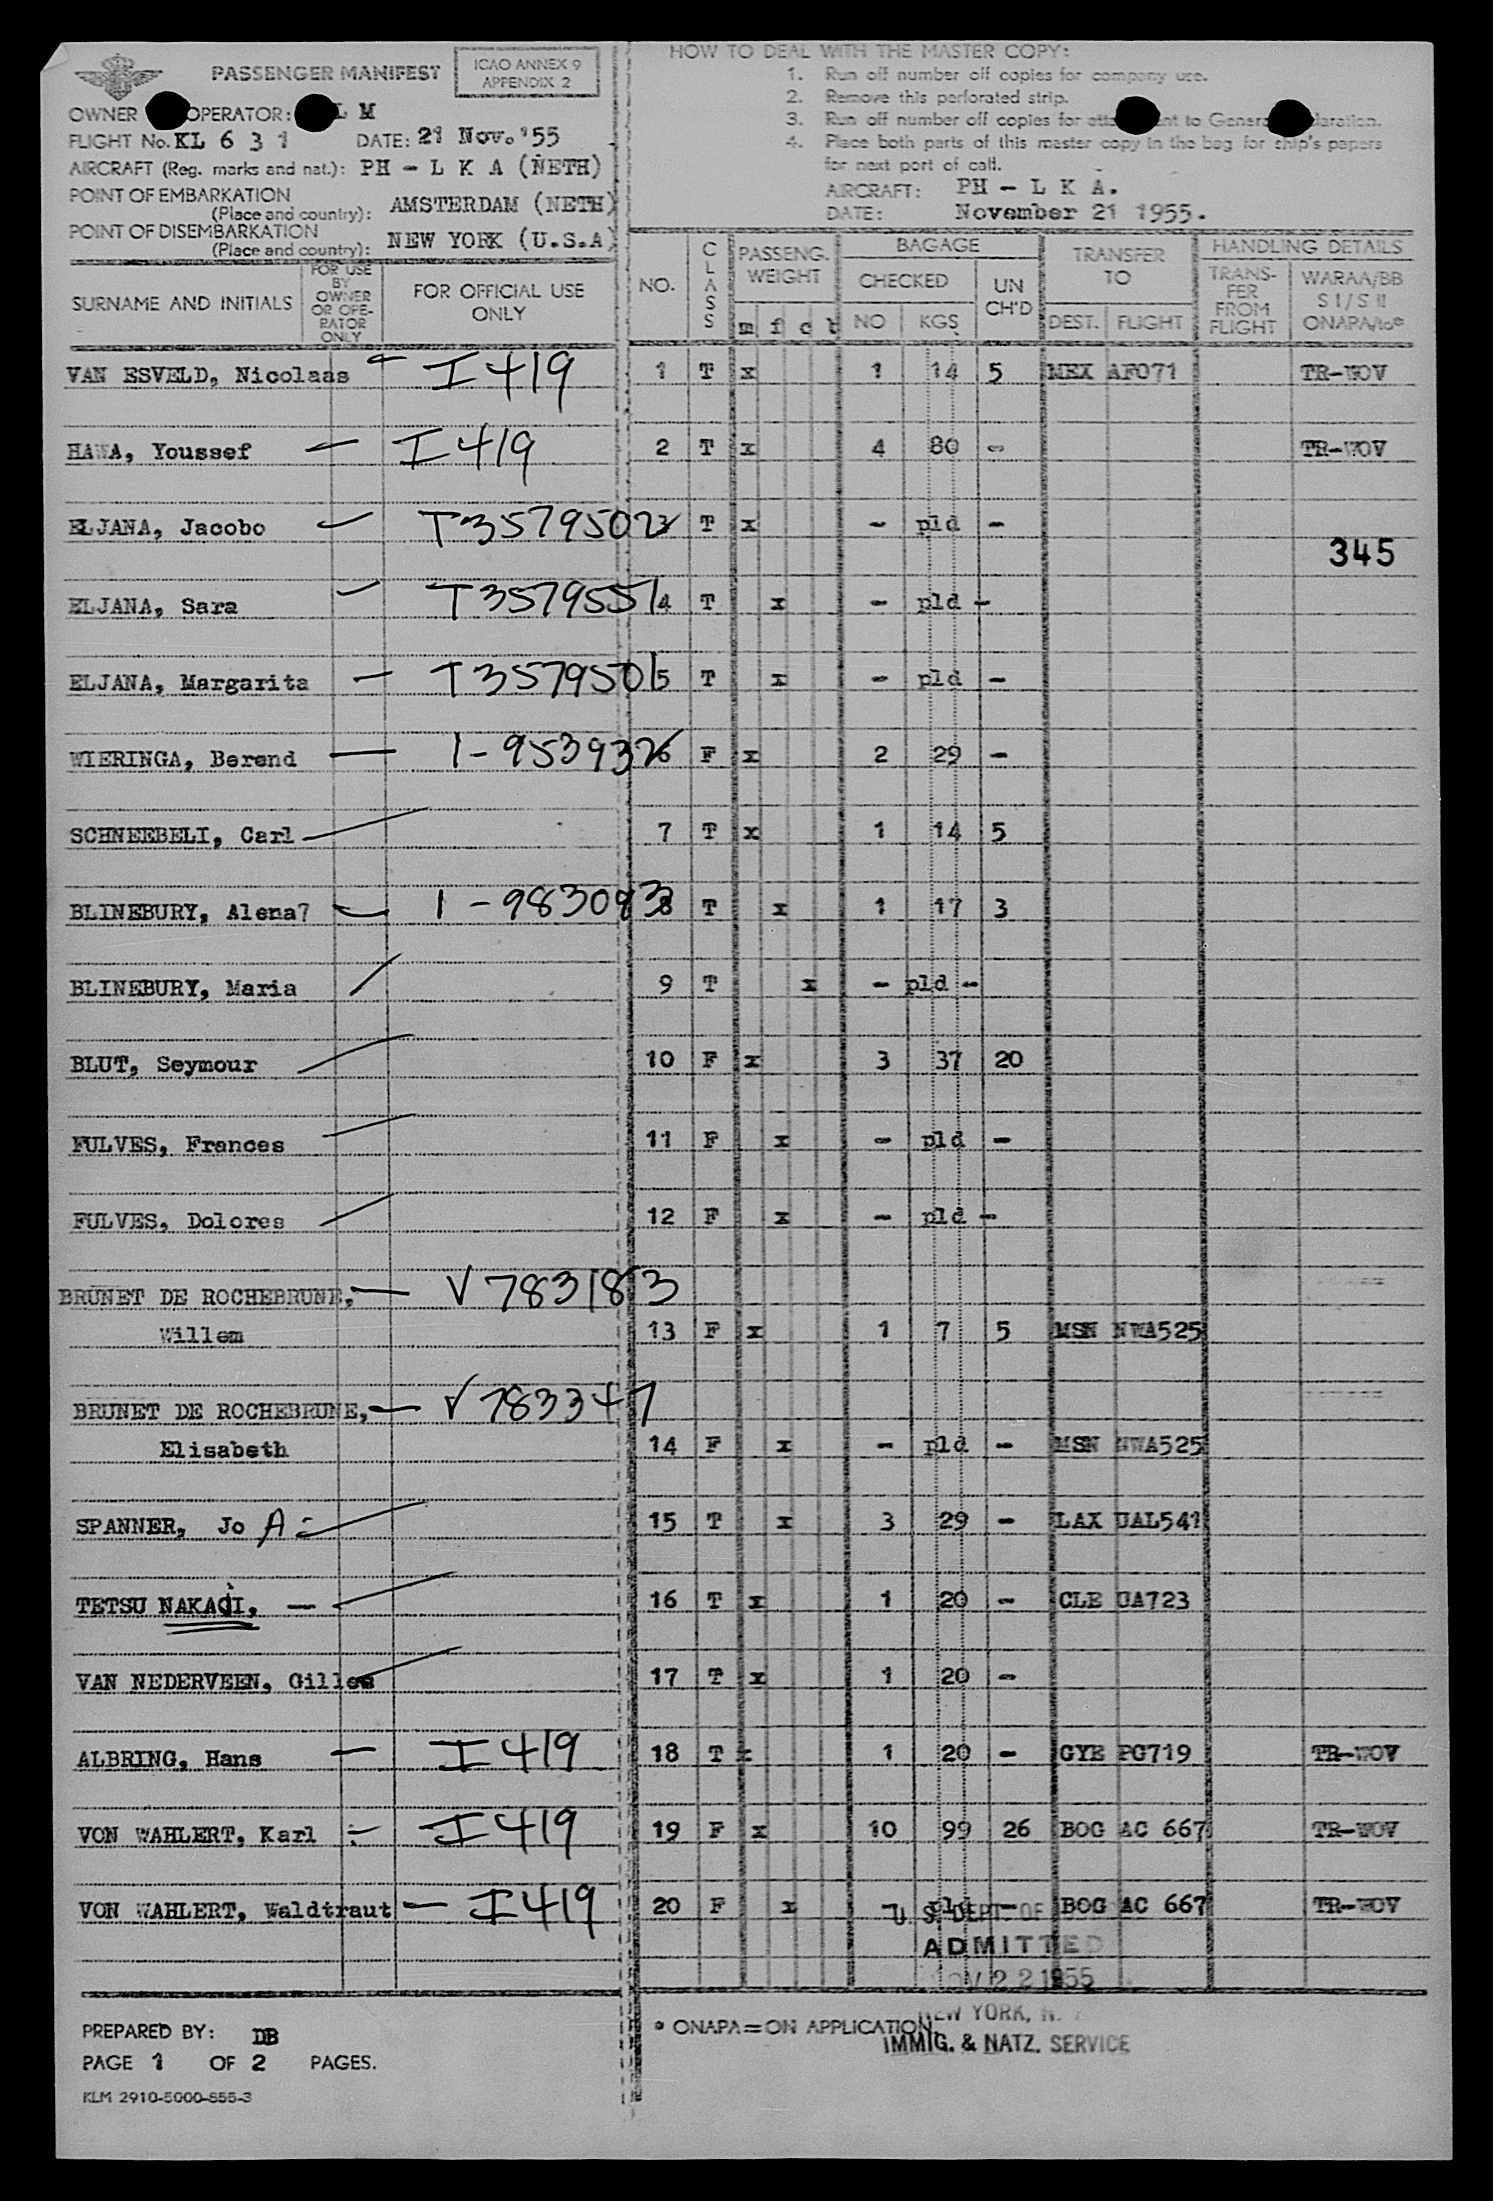 PASSENGER MANIFEST
ICAO ANNEX 9
APPENDIX 2
OWNER OPERATOR: L M
FLIGHT No. KL 6 3 1 DATE: 21 Nov. '55
AIRCRAFT (Reg. marks and nat.): PH - L K A (NETH)
POINT OF EMBARKATION
(Place and country): AMSTERDAM (NETH)
POINT OF DISEMBARKATION
(Place and country): NEW YORK (U.S.A)
HOW TO DEAL WITH THE MASTER COPY:
1. Run off number off copies for company use.
2. Remove this perforated strip.
3. Run off number off copies for to
4. Place both parts of this master copy in the bag for ship's papers
for next port of call.
AIRCRAFT: PH - L K A.
DATE: November 21 1955.
SURNAME AND INITIALS
FOR USE
BY
OWNER
OR OPE-
RATOR
ONLY
FOR OFFICIAL USE
ONLY
NO.
CLASS
PASSENG.
WEIGHT
m f c t
BAGAGE
CHECKED
NO KGS
UN
CH'D
TRANSFER
TO
DEST. FLIGHT
HANDLING DETAILS
TRANS-
FER
FROM
FLIGHT
WARAA/BB
S I / S II
VAN ESVELD, Nicolaas I 419 1 T x 1 14 5 MEX AF071 TR-WOV
HAWA, Youssef — I 419 2 T x 4 80 - TR-WOV
ELJANA, Jacobo T3579502 3 T x - pld -
345
ELJANA, Sara T3579551 4 T x - pld -
ELJANA, Margarita — T3579501 5 T x - pld -
WIERINGA, Berend — 1-953932 6 F x 2 29 -
SCHNEEBELI, Carl 7 T x 1 14 5
BLINEBURY, Alena7 1-983093 8 T x 1 17 3
BLINEBURY, Maria 9 T x - pld -
BLUT, Seymour 10 F x 3 37 20
FULVES, Frances 11 F x - pld -
FULVES, Dolores 12 F x - pld -
BRUNET DE ROCHEBRUNE, — V 783183
Willem 13 F x 1 7 5 MSN NWA525
BRUNET DE ROCHEBRUNE, — V 783347
Elisabeth 14 F x - pld - MSN NWA525
SPANNER, Jo A 15 T x 3 29 - LAX UAL541
TETSU NAKAGI, — 16 T x 1 20 - CLE UA723
VAN NEDERVEEN, Gilles 17 T x 1 20 -
ALBRING, Hans — I 419 18 T x 1 20 - GYE PG719 TR-WOV
VON WAHLERT, Karl I 419 19 F x 10 99 26 BOG AC 667 TR-WOV
VON WAHLERT, Waldtraut — I 419 20 F x - pld - BOG AC 667 TR-WOV
U. S. DEPT. OF
ADMITTED
NOV 22 1955
NEW YORK, N.
IMMIG. & NATZ. SERVICE
* ONAPA=ON APPLICATION
PREPARED BY: DB
PAGE 1 OF 2 PAGES.
KLM 2910-5000-855-3